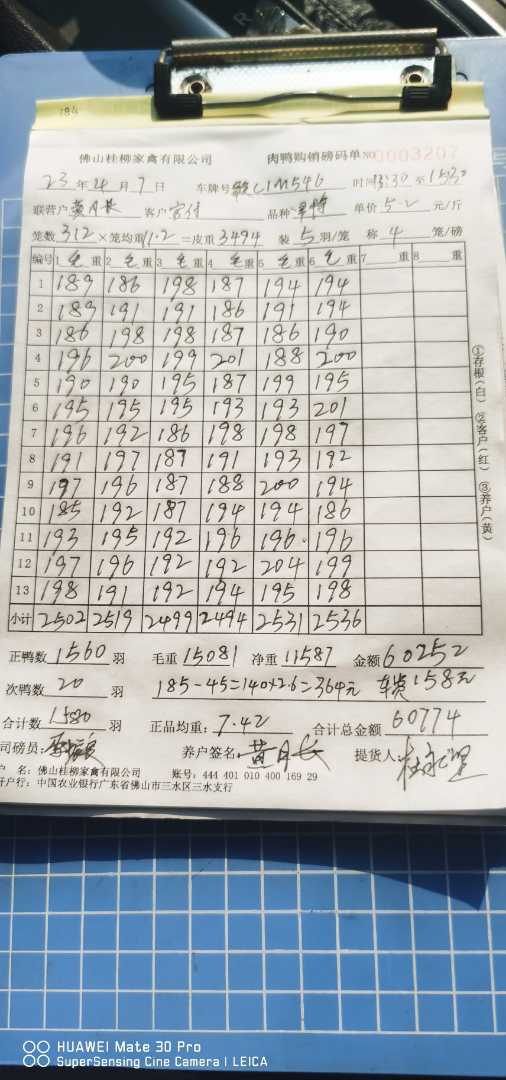 184
佛山桂柳家禽有限公司 肉鸭购销磅码单 NO 0003207
23年4月9日 车牌号 C1M546 时间13:30至1530
联营户 黄月长 客户 品种 单价5.2元/斤
笼数312×笼均重11.2=皮重3494 装5羽/笼 称4笼/磅
编号 1毛重 2毛重 3毛重 4毛重 5毛重 6毛重 7重 8重
1 189 186 198 187 194 194
2 189 191 191 186 191 194
3 186 198 198 187 186 190
4 196 200 199 201 188 200
5 190 190 195 187 199 195
6 195 195 195 193 193 201
7 196 192 186 198 198 197
8 191 197 187 191 193 192
9 197 196 187 188 200 194
10 185 192 187 194 194 186
11 193 195 192 196 196 196
12 197 196 192 192 204 199
13 198 191 192 194 195 198
小计 2502 2519 2499 2494 2531 2536
正鸭数1560羽 毛重15081 净重11587 金额60252
次鸭数20羽 185-45=140×2.6=364元 车费158元
合计数1580羽 正品均重:7.42 合计总金额60774
司磅员: 养户签名:黄月长 提货人
户 名:佛山桂柳家禽有限公司 账号:444 401 010 400 169 29
开户行:中国农业银行广东省佛山市三水区三水支行
①存根(白) ②客户(红) ③养户(黄)
HUAWEI Mate 30 Pro
SuperSensing Cine Camera | LEICA